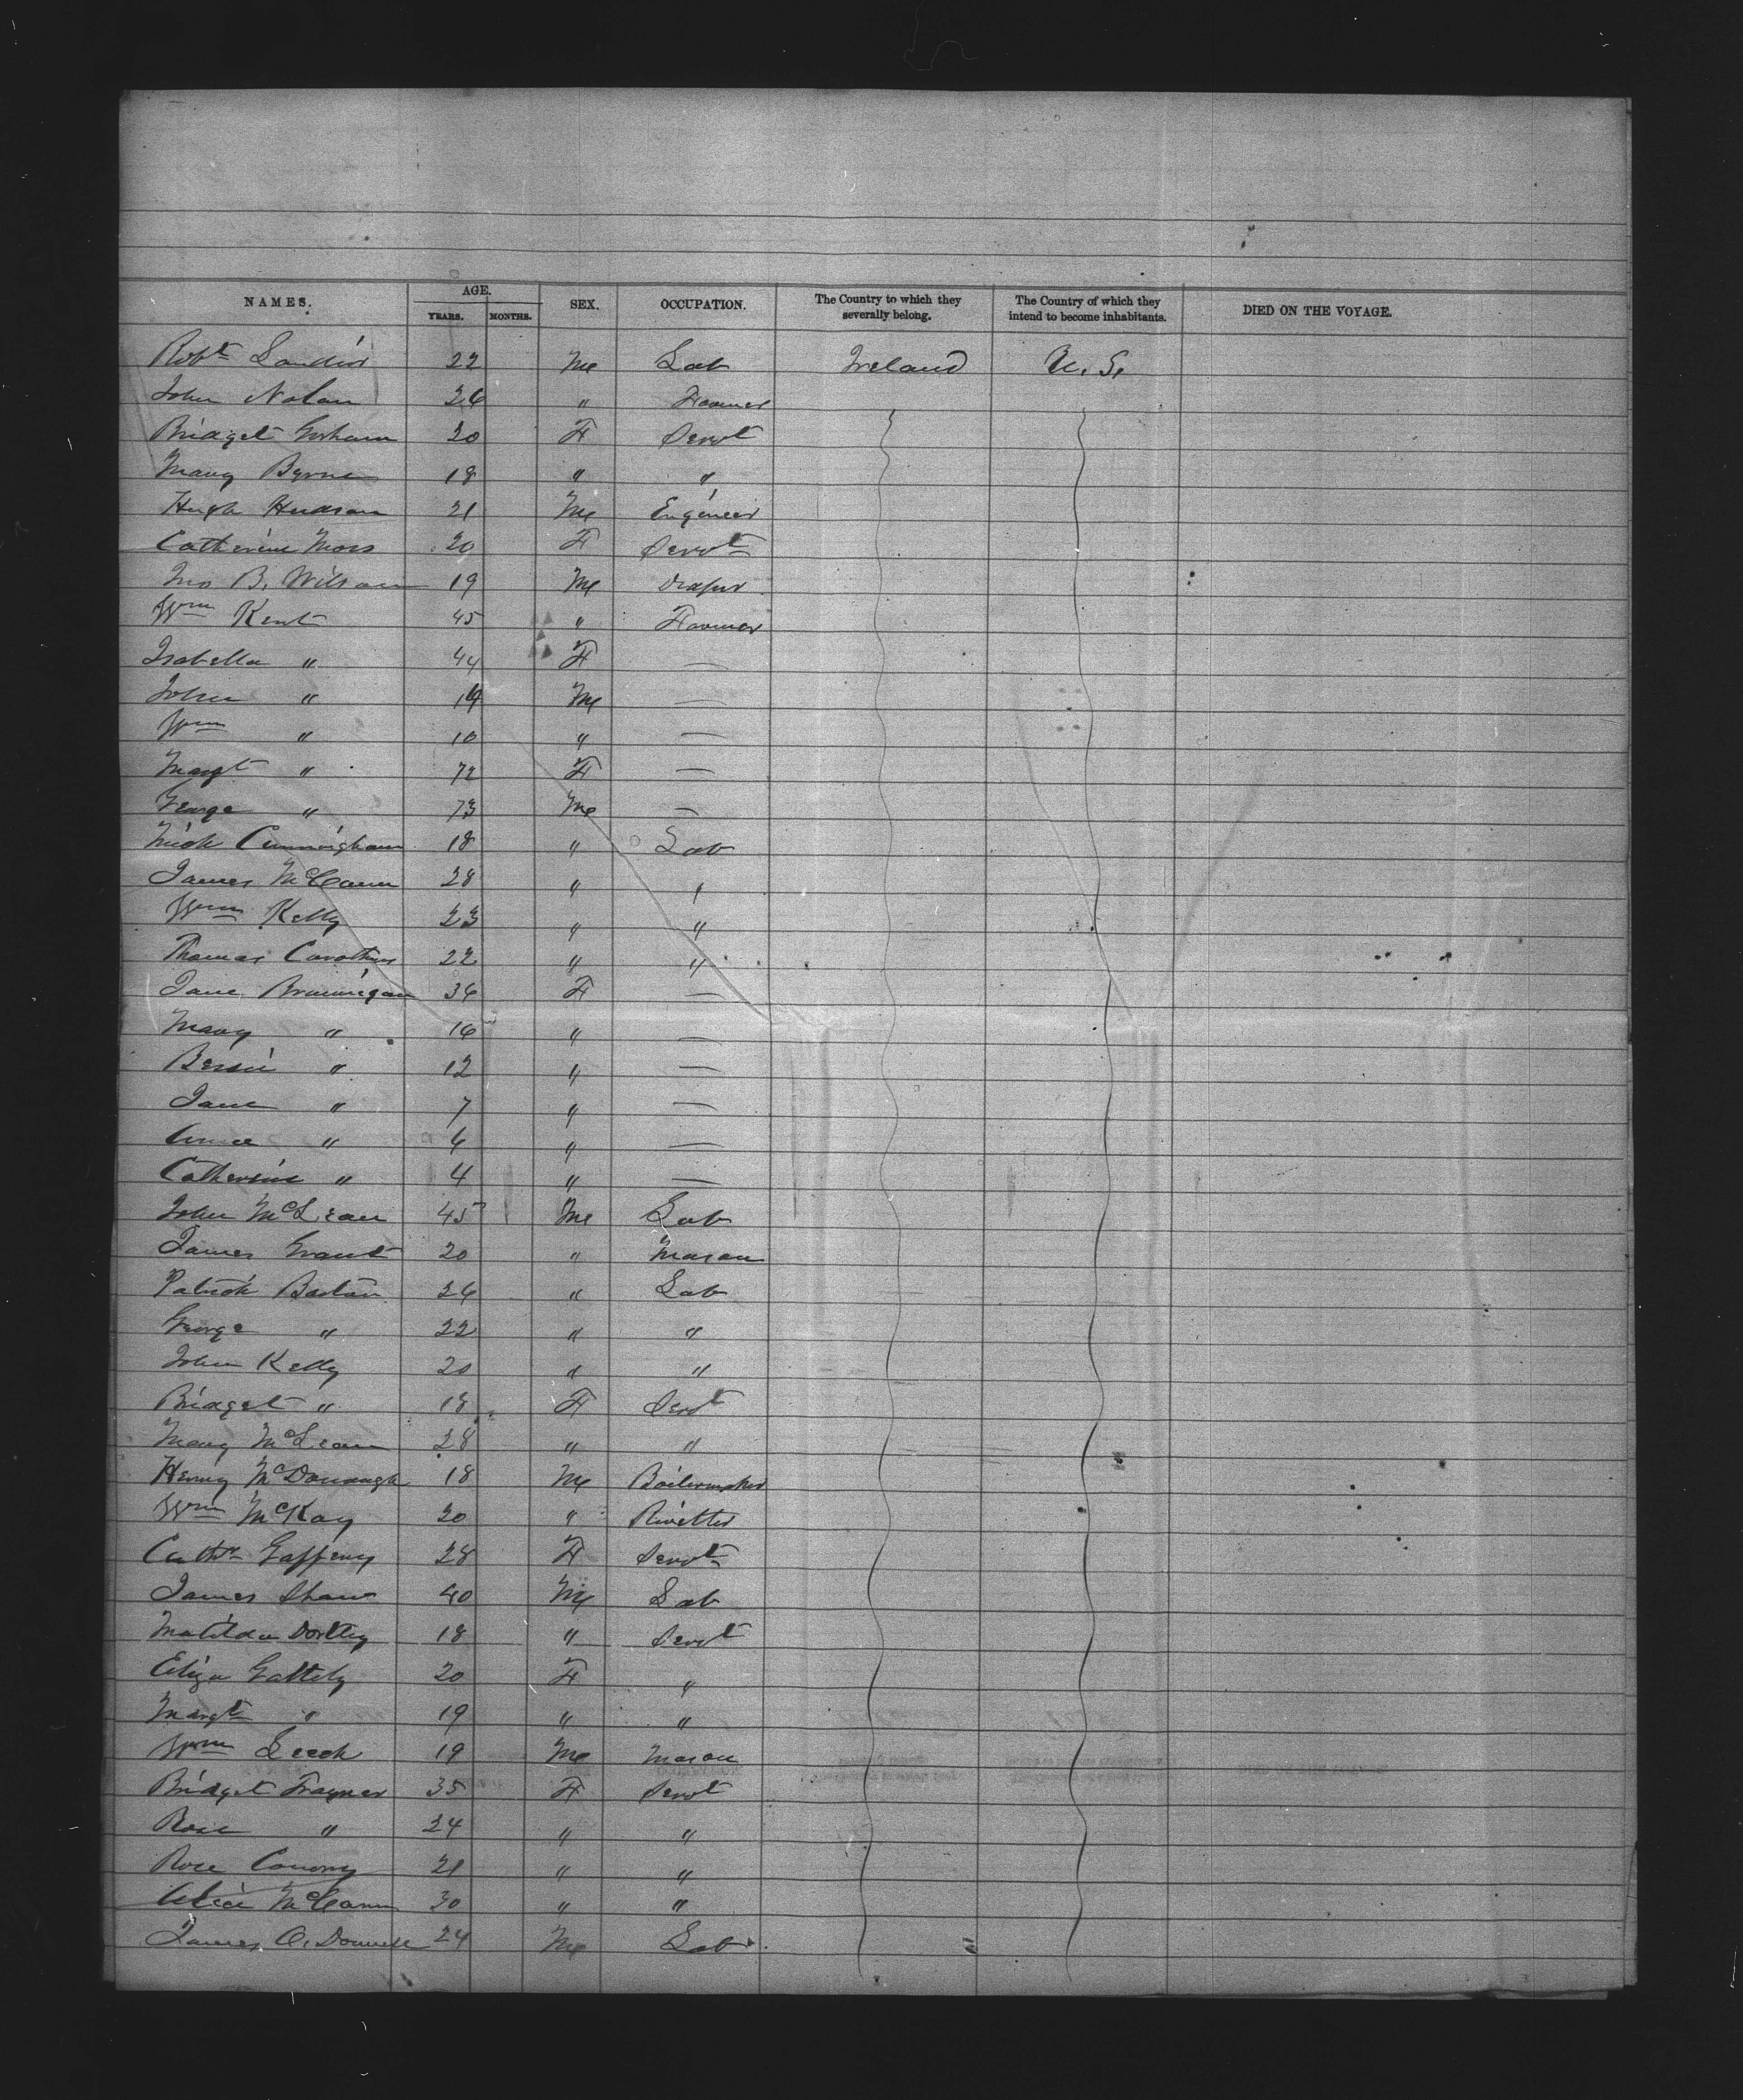 NAMES. AGE. YEARS. MONTHS. SEX. OCCUPATION. The Country to which they severally belong. The Country of which they intend to become inhabitants. DIED ON THE VOYAGE.
Robt 22 Me Lab Ireland U. S.
John Nolan 26 " Farmer
Bridget 20 F Servt
Mary Byrne 18 " "
Hugh Hudson 21 Me Engineer
Catherine Moss 20 F Servt
Jno B. Wilson 19 Me Draper
Wm Kent 45 " Farmer
Isabella " 44 F —
John " Me —
Wm " 10 " —
Margt " 72 F —
George " 73 Me —
Mich Cunningham 18 " Lab
James McCann 28 " "
Wm Kelly 23 " "
Thomas Carothers 22 " "
Jane Brannigan 36 F —
Mary " 16 " —
Bessie " 12 " —
Jane " 7 " —
Annie " 6 " —
Catherine " 4 " —
John McLean 45 Me Lab
James Grant 20 " Mason
Patrick 26 " Lab
George " 22 " "
John Kelly 20 " "
Bridget " 18 F Servt
Mary McLean 28 " "
Henry McDonaugh 18 Me Boilermaker
Wm McKay 20 " Rivetter
Cathr Gaffeny 28 F Servt
James Shaw 40 Me Lab
Matilda 18 " Servt
Eliza 20 F "
Margt " 19 " "
Wm Leech 19 Me Mason
Bridget Traynor 35 F Servt
Rose " 24 " "
Rose 21 " "
Alice McCann 30 " "
James O. Donnell 24 Me Lab